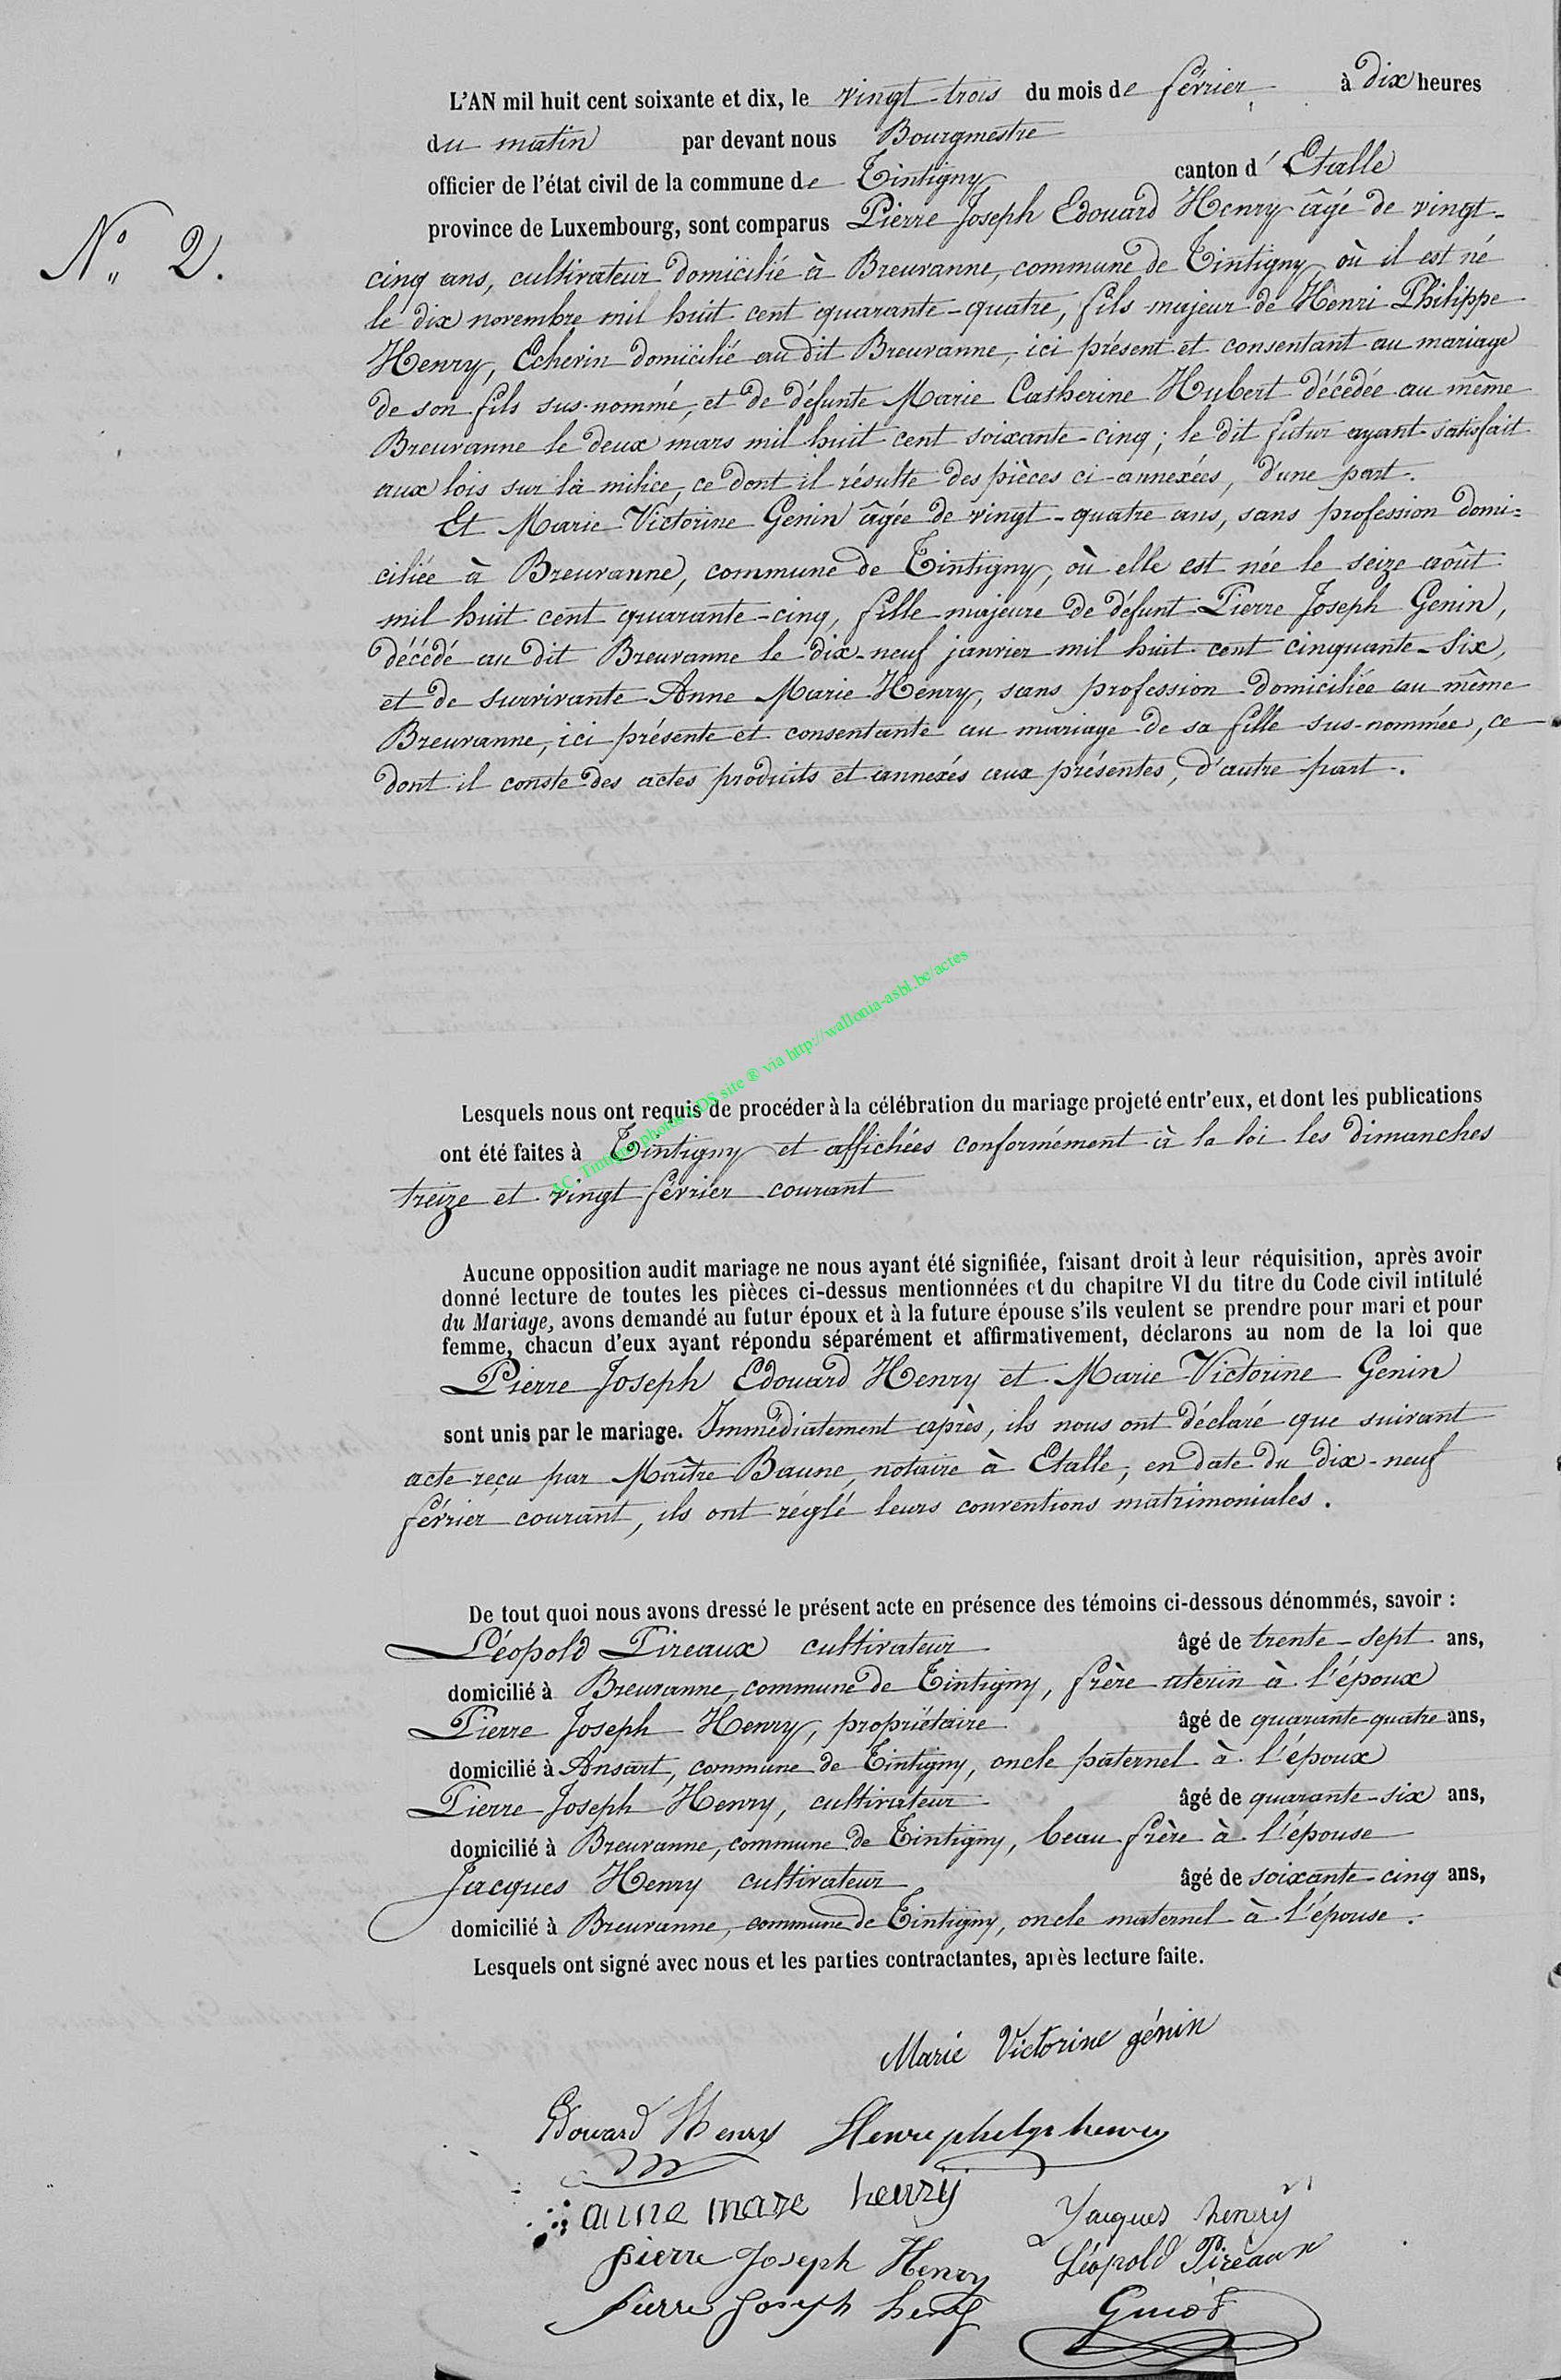 L'AN mil huit cent soixante et dix, le vingt-trois du mois de février à dix heures
du matin par devant nous Bourgmestre
officier de l'état civil de la commune de Tintigny canton d'Etalle
province de Luxembourg, sont comparus Pierre Joseph Edouard Henry âgé de vingt-
N° 2.
cinq ans, cultivateur domicilié à Breuvanne, commune de Tintigny, où il est né
le dix novembre mil huit cent quarante-quatre, fils majeur de Henri Philippe
Henry, Echevin domicilié au dit Breuvanne, ici présent et consentant au mariage
de son fils sus-nommé, et de défunte Marie Catherine Hubert décédée au même
Breuvanne le deux mars mil huit cent soixante-cinq; le dit futur ayant satisfait
aux lois sur la milice, ce dont il résulte des pièces ci-annexées, d'une part.
Et Marie Victorine Genin âgée de vingt-quatre ans, sans profession domi=
ciliée à Breuvanne, commune de Tintigny, où elle est née le seize août
mil huit cent quarante-cinq, fille majeure de défunt Pierre Joseph Genin,
décédé au dit Breuvanne le dix-neuf janvier mil huit cent cinquante-six,
et de survivante Anne Marie Henry, sans profession domiciliée au même
Breuvanne, ici présente et consentante au mariage de sa fille sus-nommée, ce
dont il conste des actes produits et annexés aux présentes, d'autre part.
AC Tintigny photos LDS site ® via http://wallonia-asbl.be/actes
Lesquels nous ont requis de procéder à la célébration du mariage projeté entr'eux, et dont les publications
ont été faites à Tintigny et affichées conformément à la loi les dimanches
treize et vingt février courant
Aucune opposition audit mariage ne nous ayant été signifiée, faisant droit à leur réquisition, après avoir
donné lecture de toutes les pièces ci-dessus mentionnées et du chapitre VI du titre du Code civil intitulé
du Mariage, avons demandé au futur époux et à la future épouse s'ils veulent se prendre pour mari et pour
femme, chacun d'eux ayant répondu séparément et affirmativement, déclarons au nom de la loi que
Pierre Joseph Edouard Henry et Marie Victorine Genin
sont unis par le mariage. Immédiatement après, ils nous ont déclaré que suivant
acte reçu par Maître Baune, notaire à Etalle, en date du dix-neuf
février courant, ils ont réglé leurs conventions matrimoniales.
De tout quoi nous avons dressé le présent acte en présence des témoins ci-dessous dénommés, savoir :
Léopold Pireaux cultivateur âgé de trente-sept ans,
domicilié à Breuvanne, commune de Tintigny, frère uterin à l'époux
Pierre Joseph Henry, propriétaire âgé de quarante-quatre ans,
domicilié à Ansart, commune de Tintigny, oncle paternel à l'époux
Pierre Joseph Henry, cultivateur âgé de quarante-six ans,
domicilié à Breuvanne, commune de Tintigny, beau frère à l'épouse
Jacques Henry cultivateur âgé de soixante-cinq ans,
domicilié à Breuvanne, commune de Tintigny, oncle maternel à l'épouse.
Lesquels ont signé avec nous et les parties contractantes, après lecture faite.
Marie Victorine génin
Edouard Henry Henri philipe henry
anne mare henry Jacques henery
pierre Joseph Henry Léopold Pireaux
pierre Joseph henry